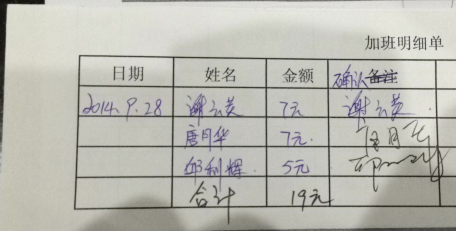 加班明细单
日期 姓名 金额 确认备注
2014.9.28 谢云英 7元 谢云英
唐月华 7元.
邱利辉. 5元
合计 19元